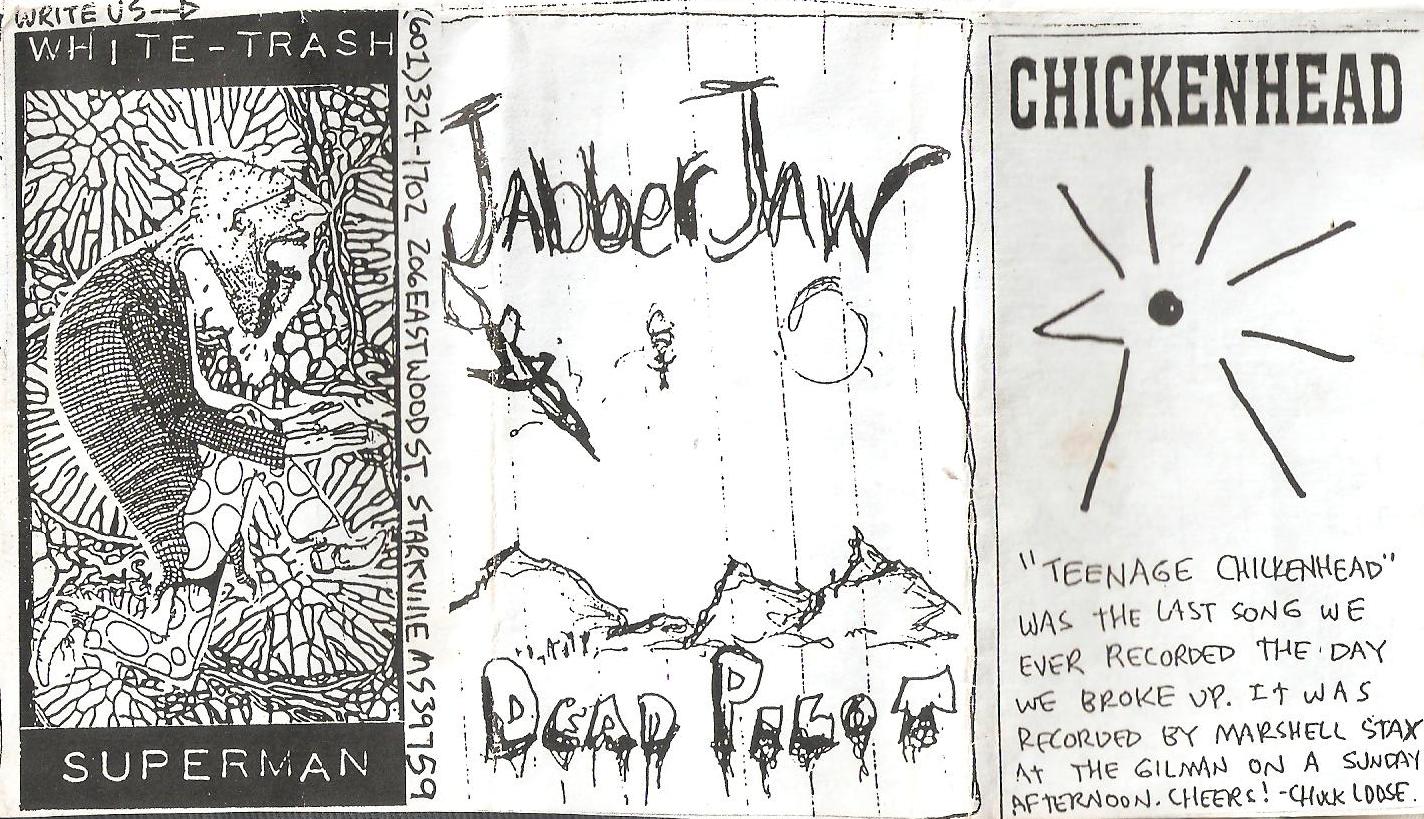 WRITE US
WHITE-TRASH
SUPERMAN
(601)324-1702 206 EASTWOOD ST. STARKVILLE MS 39759
JabberJaw
DEAD PILOT
CHICKENHEAD
"TEENAGE CHICKENHEAD"
WAS THE LAST SONG WE
EVER RECORDED THE DAY
WE BROKE UP. IT WAS
RECORDED BY MARSHELL STAX
AT THE GILMAN ON A SUNDAY
AFTERNOON. CHEERS! -CHUCK LOOSE.